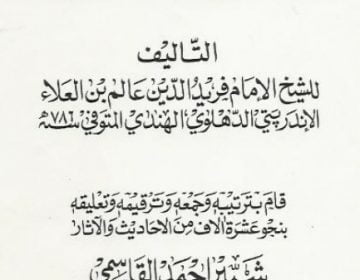 التأليف
للشيخ الإمام فريد الدين عالم بن العلاء
الإندربتي الدهلوي الهندي المتوفى سنة ٧٨٦هـ
قام بترتيبه وجمعه وترقيمه وتعليقه
بنحو عشرة آلاف من الأحاديث والآثار
شبير أحمد القاسمي